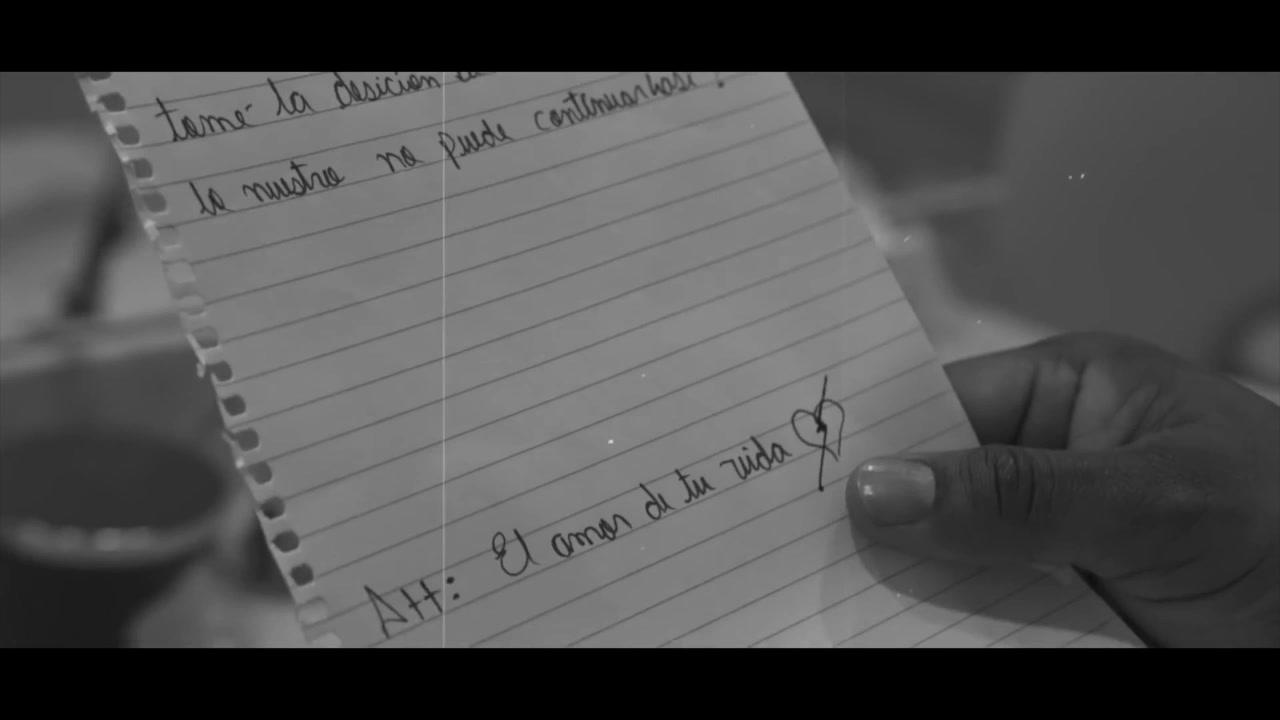 tomé la desicion
lo nuestro no puede continuar hasi!
Att: El amor de tu vida